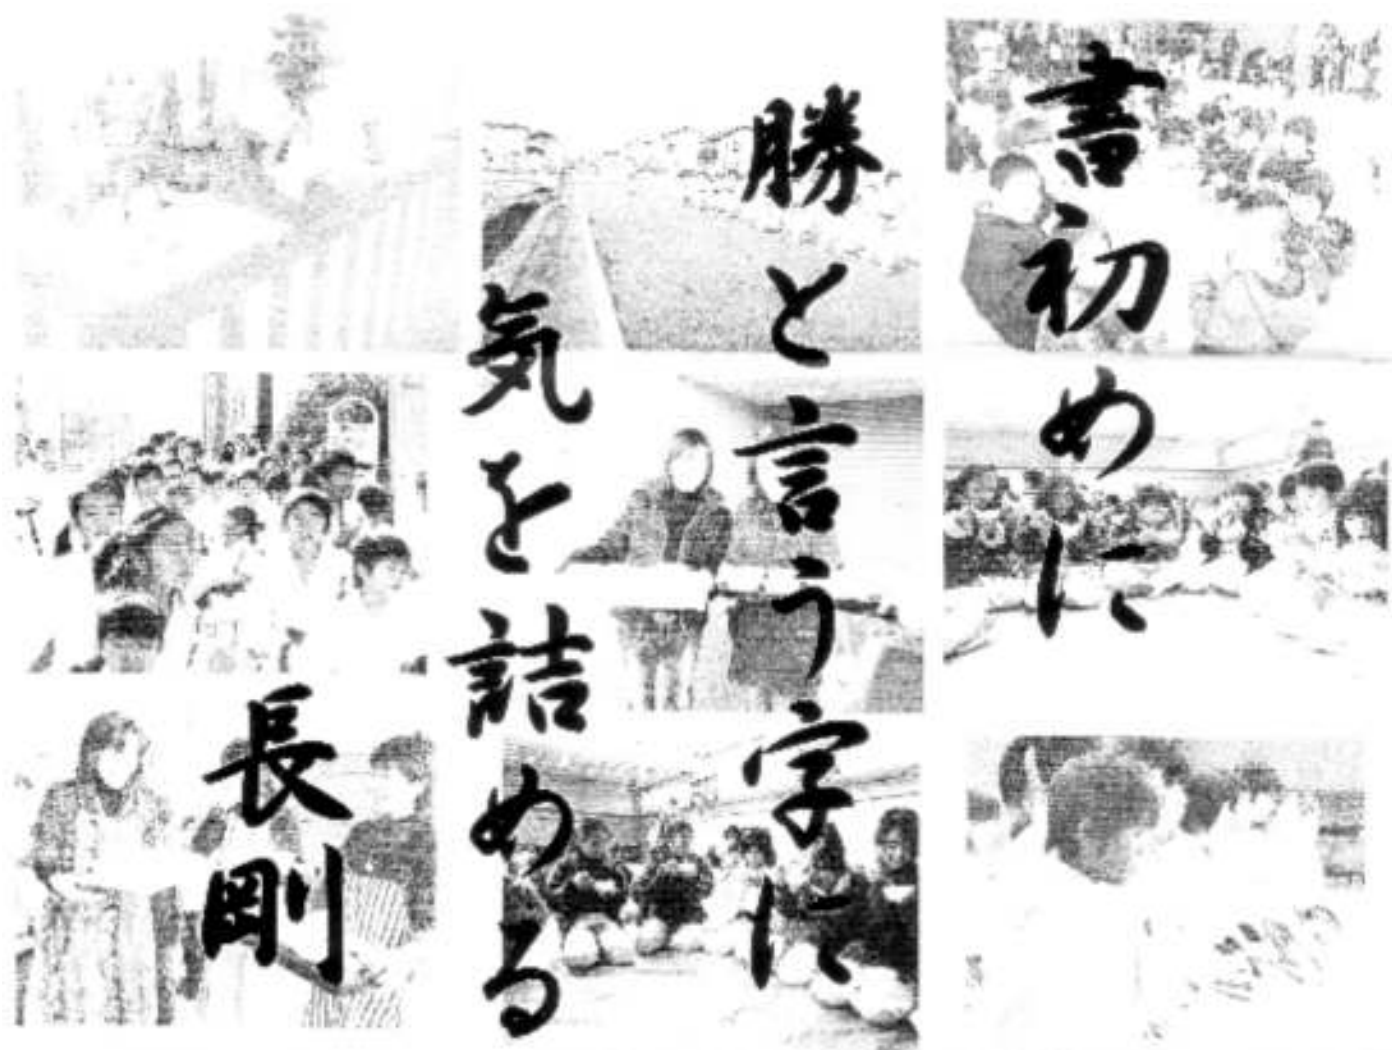 書初めに
勝と言う字に
気を詰める
長剛